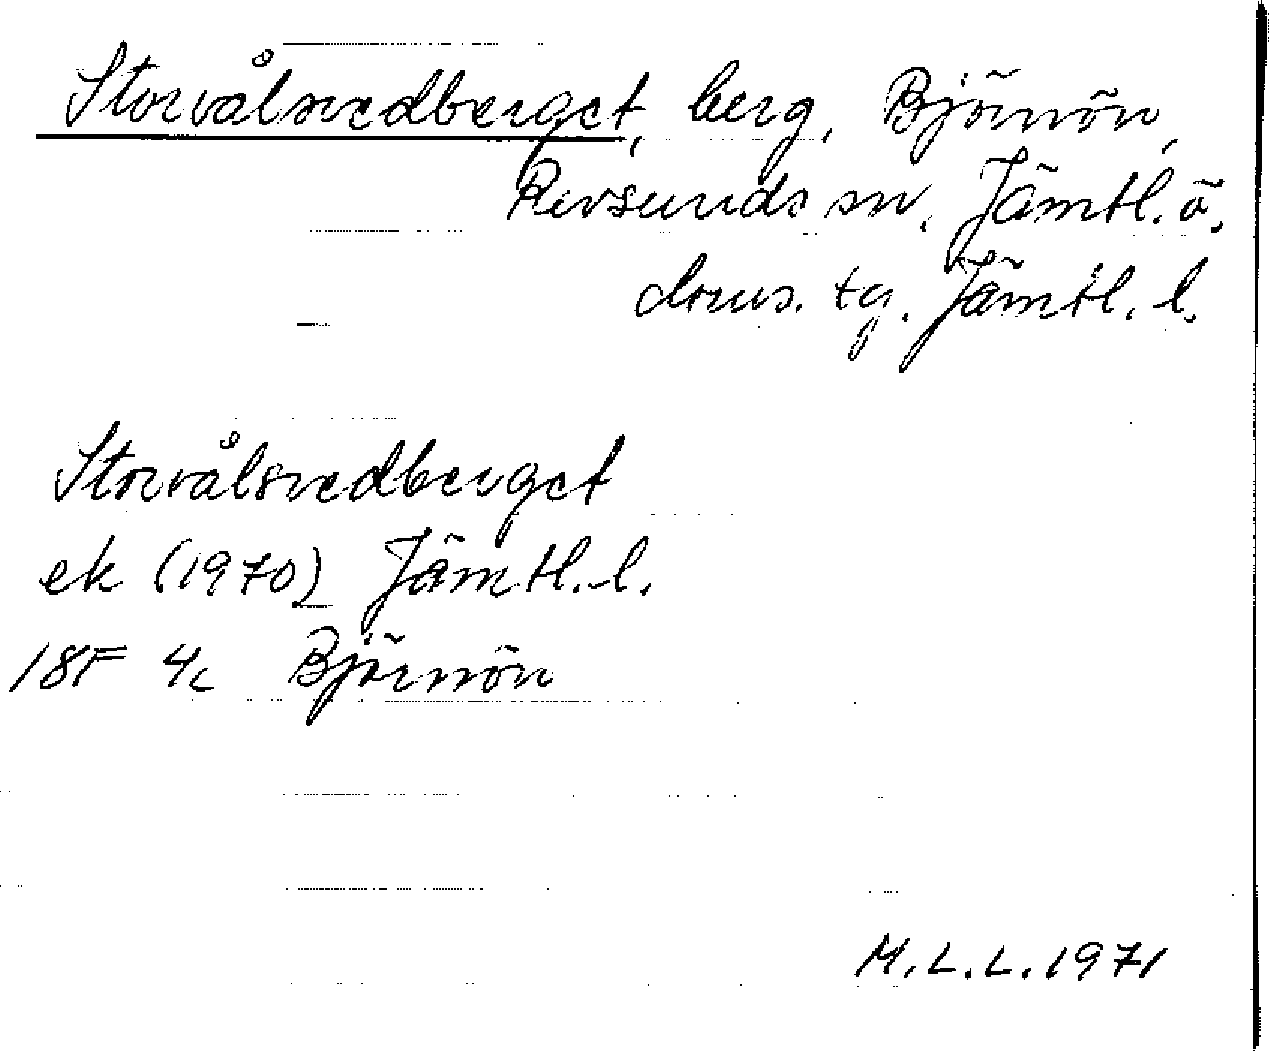 Storvålsvedberget, berg, Björnön,
Revsunds sn, Jämtl. ö.
doms. tg, Jämtl. l.
Storvålsvedberget
ek (1970) Jämtl. l.
18F 4c Björnön
M.L.L. 1971